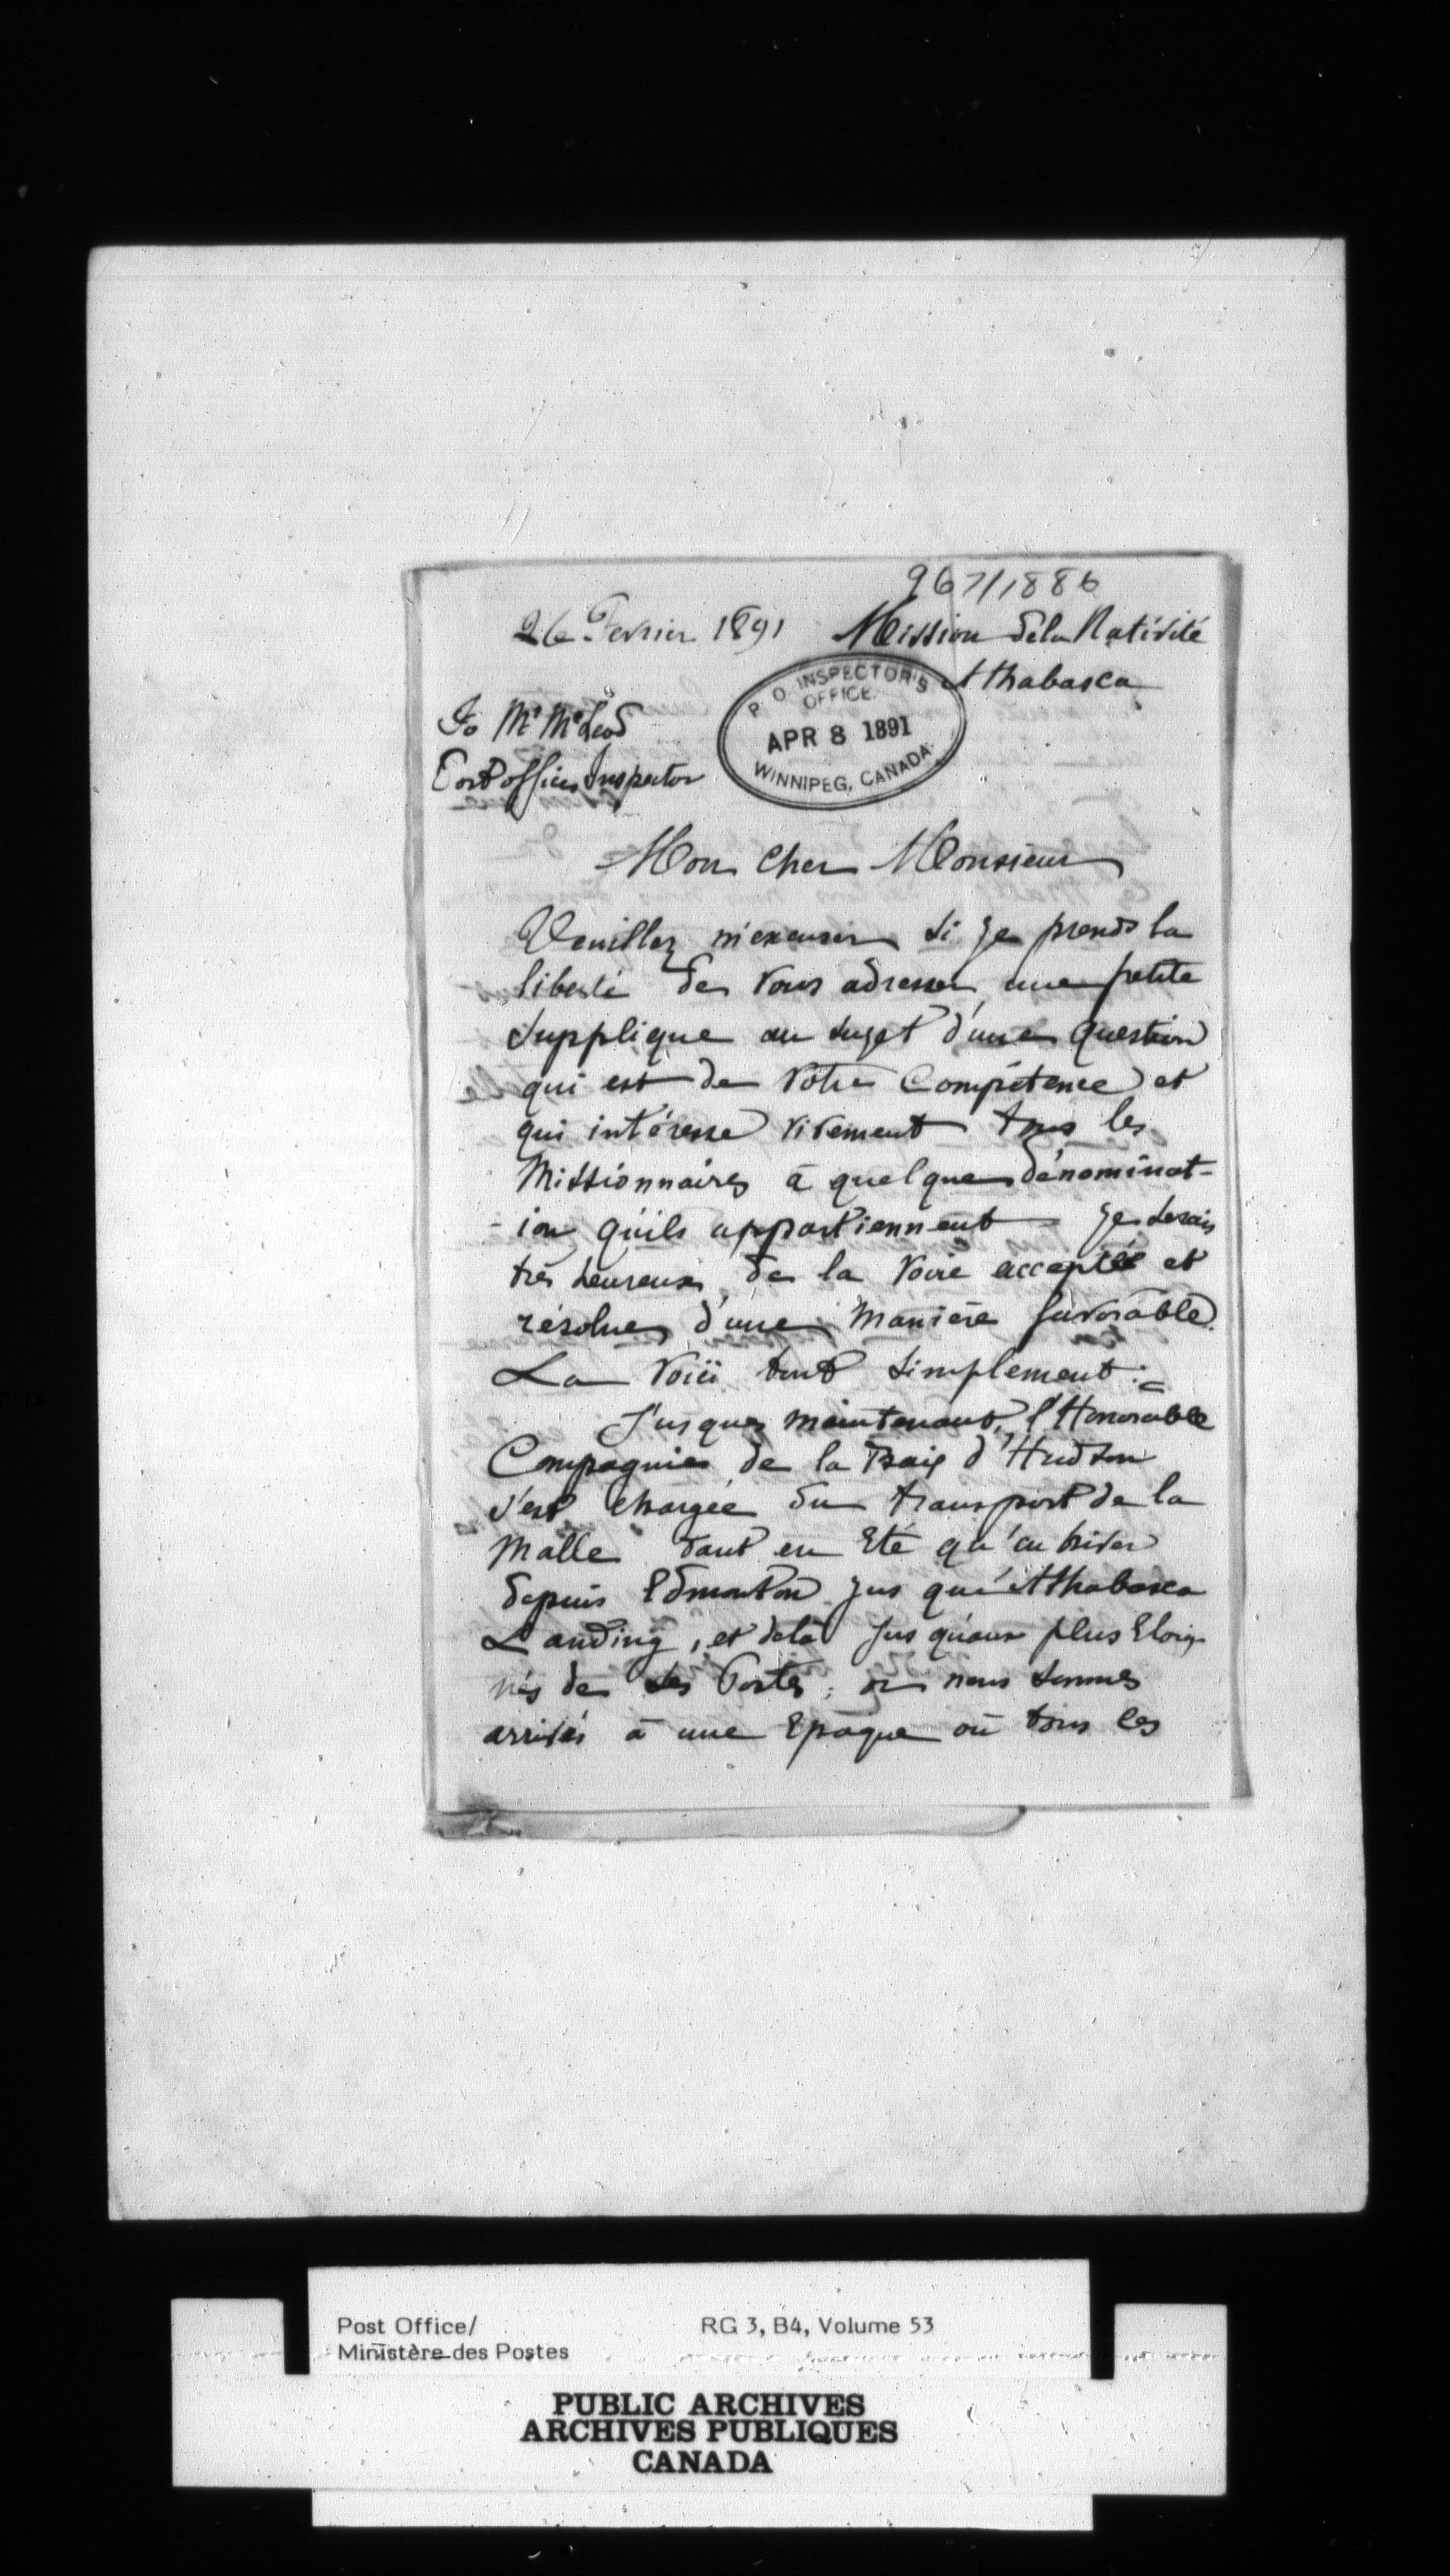 967/1886
26 Fevrier 1891 Mission dela Nativité
Athabasca
P. O. INSPECTOR'S
OFFICE.
APR 8 1891
WINNIPEG, CANADA.
To Mr McLeod
Post office Inspector
Mon Cher Monsieur
Veuillez m'excuser si je prends la
liberté de vous adresser une petite
supplique au sujet d'une question
qui est de votre Compétence et
qui intéresse vivement tous les
Missionnaires à quelque dénominat-
-ion qu'ils appartiennent - je serais
très heureux de la voir acceptée et
résolue d'une manière favorable.
La voici tout simplement :=
Jusque maintenant, l'Honorable
Compagnie de la Baie d'Hudson
s'est chargée du transport de la
Malle tant en Eté qu'en hiver
depuis Edmonton jus qu'Athabasca
Landing, et delà jus qu'aux plus Eloig
nés de ses Postes; or nous sommes
arrivés à une Epoque où tous les
Post Office/
Ministère des Postes
RG 3, B4, Volume 53
PUBLIC ARCHIVES
ARCHIVES PUBLIQUES
CANADA